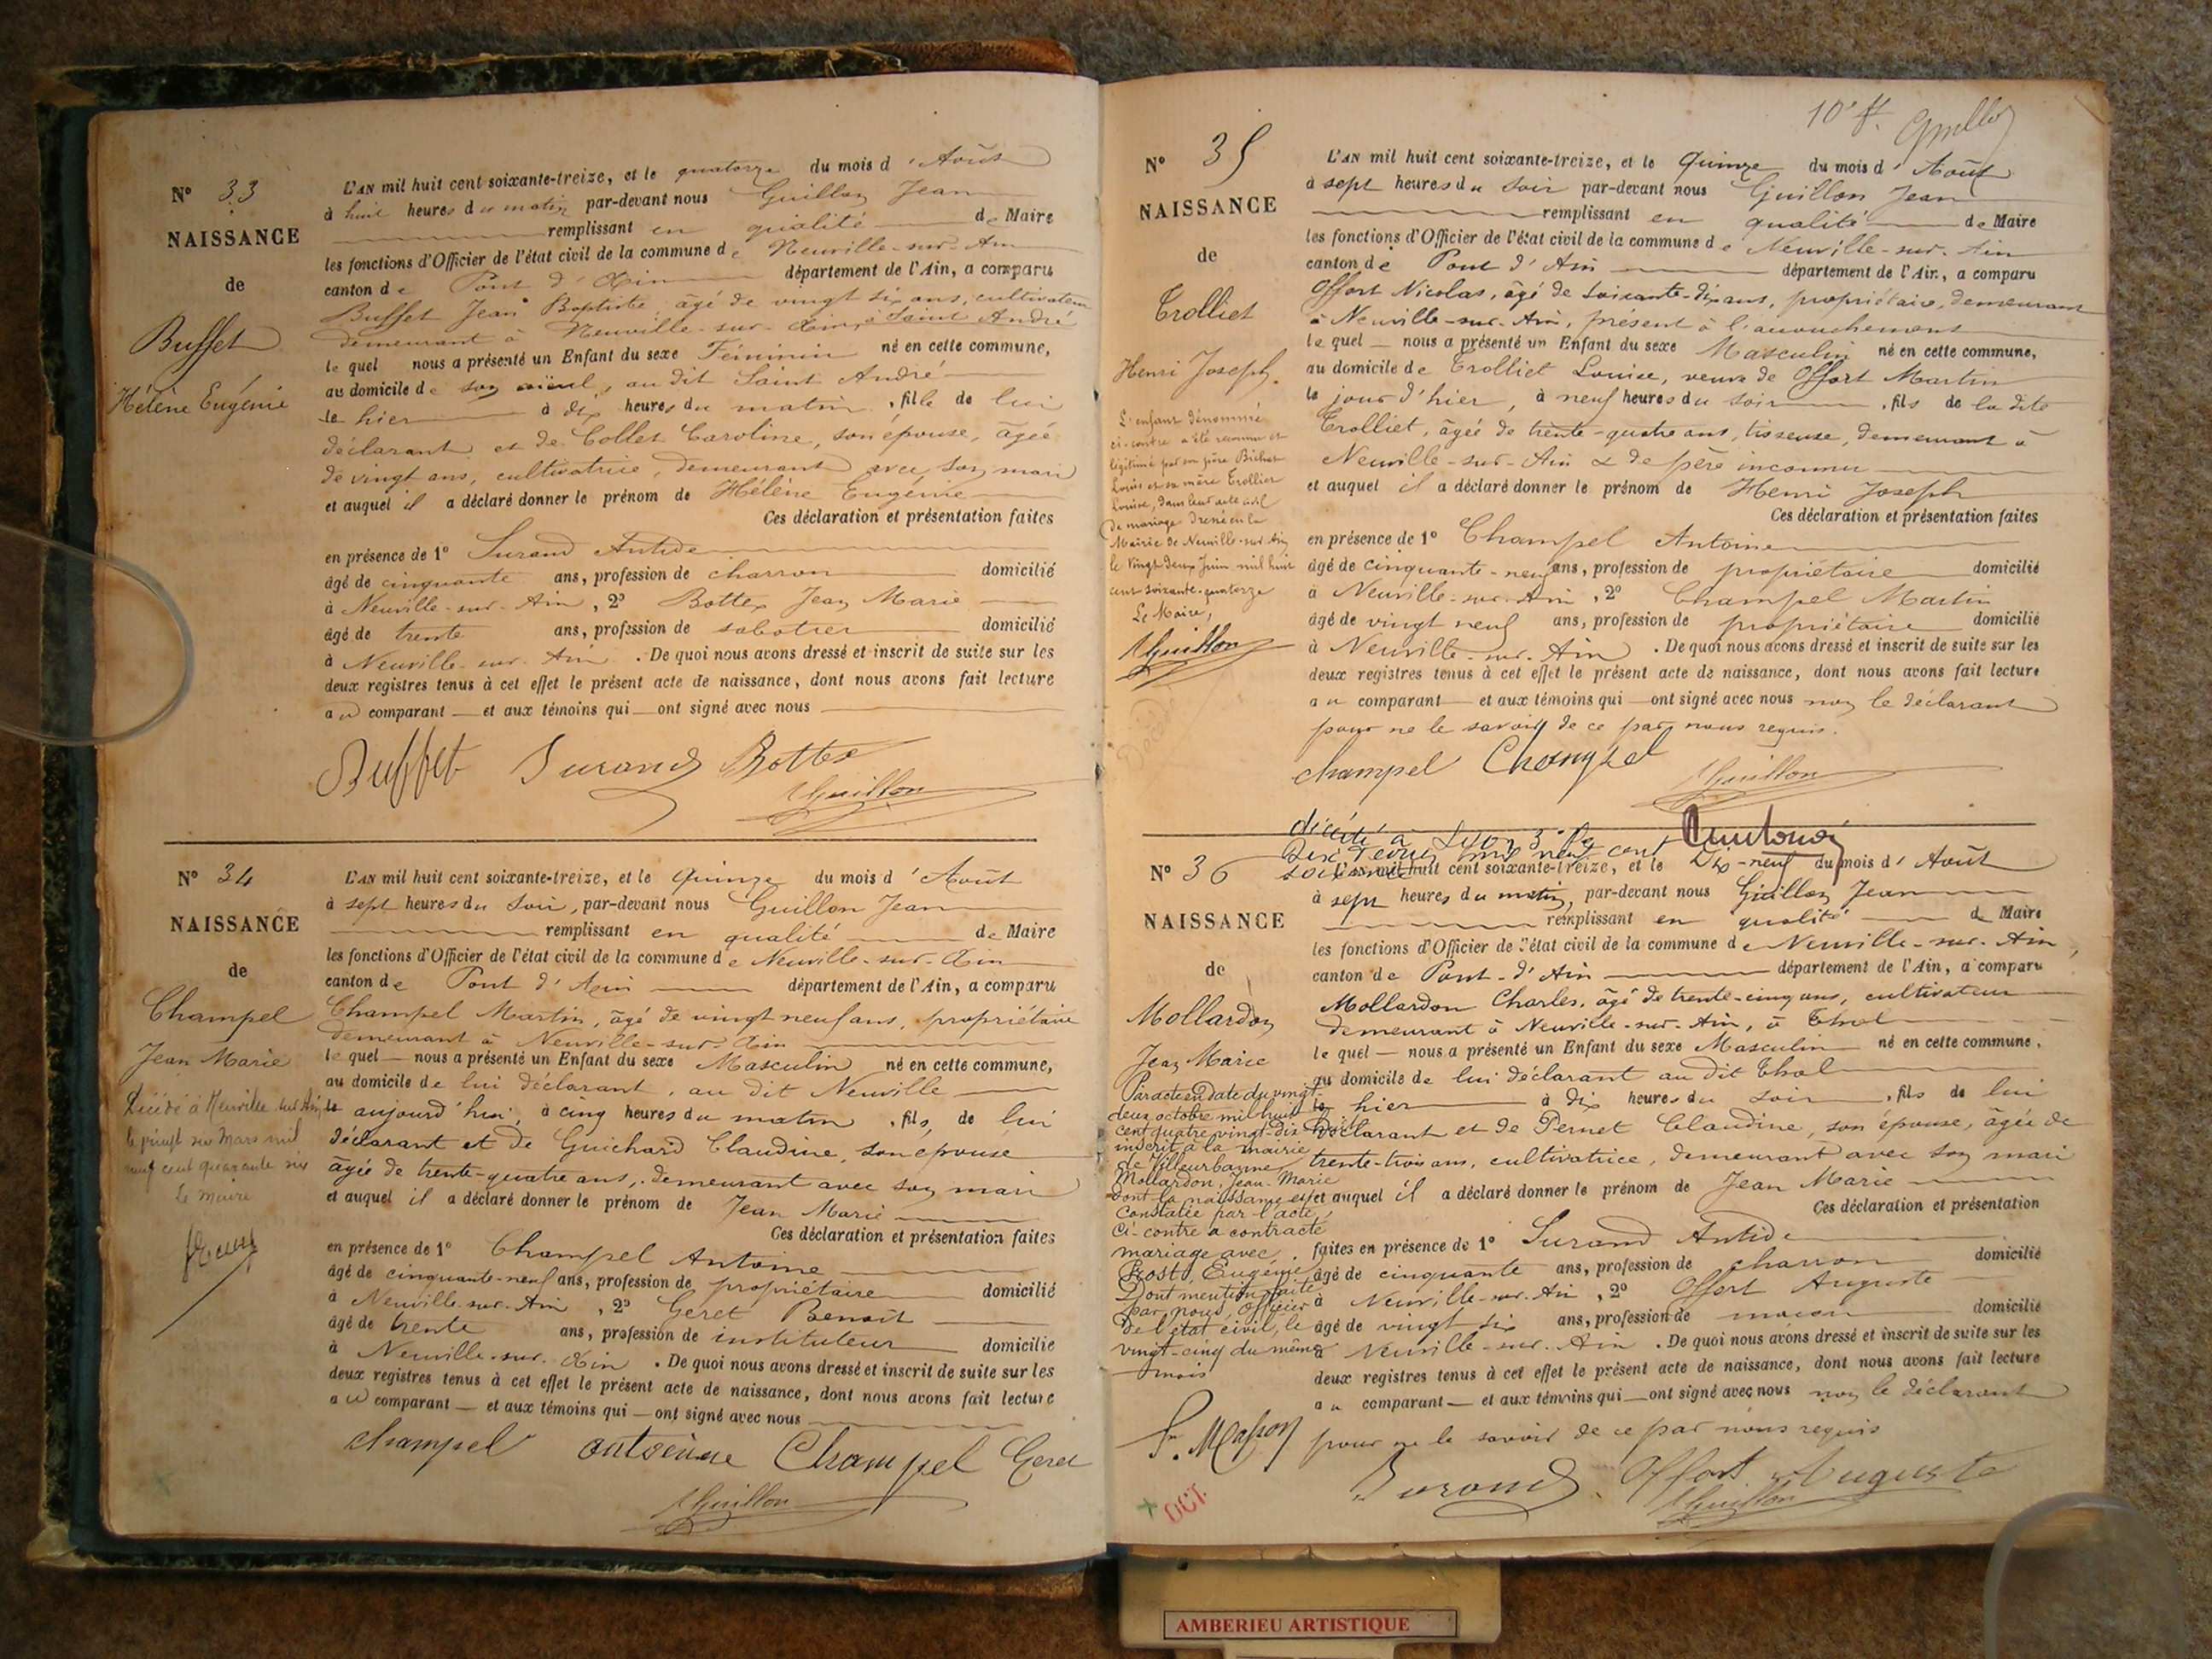 N° 33
NAISSANCE
de
Buffet
Hélène Eugénie
L'AN mil huit cent soixante-treize, et le quatorze du mois d'Août
à huit heures du matin par-devant nous Guillon Jean
remplissant en qualité de Maire
les fonctions d'Officier de l'état civil de la commune de Neuville-sur-Ain
canton de Pont d'Ain département de l'Ain, a comparu
Buffet Jean Baptiste âgé de vingt six ans, cultivateur
demeurant à Neuville-sur-Ain, à Saint André
le quel nous a présenté un Enfant du sexe Féminin né en cette commune,
au domicile de son aïeul, au dit Saint André
le hier à dix heures du matin, fille de lui
déclarant et de Collet Caroline, son épouse, âgée
de vingt ans, cultivatrice, demeurant avec son mari
et auquel il a déclaré donner le prénom de Hélène Eugénie
Ces déclaration et présentation faites
en présence de 1° Durand Antide
âgé de cinquante ans, profession de charron domicilié
à Neuville-sur-Ain, 2° Bottex Jean Marie
âgé de trente ans, profession de sabotier domicilié
à Neuville-sur-Ain. De quoi nous avons dressé et inscrit de suite sur les
deux registres tenus à cet effet le présent acte de naissance, dont nous avons fait lecture
au comparant et aux témoins qui ont signé avec nous
Buffet Durand Bottex
Guillon
N° 34
NAISSANCE
de
Champel
Jean Marie
Décédé à Neuville sur Ain
le vingt six Mars mil
neuf cent quarante six
Le Maire
L'AN mil huit cent soixante-treize, et le Quinze du mois d'Août
à sept heures du soir, par-devant nous Guillon Jean
remplissant en qualité de Maire
les fonctions d'Officier de l'état civil de la commune de Neuville-sur-Ain
canton de Pont d'Ain département de l'Ain, a comparu
Champel Martin, âgé de vingt neuf ans, propriétaire
demeurant à Neuville-sur-Ain
le quel nous a présenté un Enfant du sexe Masculin né en cette commune,
au domicile de lui déclarant, au dit Neuville
le aujourd'hui, à cinq heures du matin, fils de lui
déclarant et de Guichard Claudine, son épouse
âgée de trente-quatre ans, demeurant avec son mari
et auquel il a déclaré donner le prénom de Jean Marie
Ces déclaration et présentation faites
en présence de 1° Champel Antoine
âgé de cinquante-neuf ans, profession de propriétaire domicilié
à Neuville-sur-Ain, 2° Geret Benoit
âgé de trente ans, profession de instituteur domicilié
à Neuville-sur-Ain. De quoi nous avons dressé et inscrit de suite sur les
deux registres tenus à cet effet le présent acte de naissance, dont nous avons fait lecture
au comparant et aux témoins qui ont signé avec nous
champel antoine Champel Geret
Guillon
10e f. Guillon
N° 35
NAISSANCE
de
Trolliet
Henri Joseph.
L'enfant dénommé
ci-contre a été reconnu et
légitimé par son père
Louis et sa mère Trolliet
Louise, dans leur acte civil
de mariage dressé en la
Mairie de Neuville-sur-Ain
le vingt deux Juin mil huit
cent soixante-quatorze
Le Maire,
Guillon
L'AN mil huit cent soixante-treize, et le Quinze du mois d'Août
à sept heures du soir par-devant nous Guillon Jean
remplissant en qualité de Maire
les fonctions d'Officier de l'état civil de la commune de Neuville-sur-Ain
canton de Pont d'Ain département de l'Ain, a comparu
Offort Nicolas, âgé de soixante-dix ans, propriétaire, demeurant
à Neuville-sur-Ain, présent à l'accouchement
le quel nous a présenté un Enfant du sexe Masculin né en cette commune,
au domicile de Trolliet Louise, veuve de Offort Martin
le jour d'hier, à neuf heures du soir, fils de la dite
Trolliet, âgée de trente-quatre ans, tisseuse, demeurant à
Neuville-sur-Ain & de père inconnu
et auquel il a déclaré donner le prénom de Henri Joseph
Ces déclaration et présentation faites
en présence de 1° Champel Antoine
âgé de cinquante-neuf ans, profession de propriétaire domicilié
à Neuville-sur-Ain, 2° Champel Martin
âgé de vingt neuf ans, profession de propriétaire domicilié
à Neuville-sur-Ain. De quoi nous avons dressé et inscrit de suite sur les
deux registres tenus à cet effet le présent acte de naissance, dont nous avons fait lecture
au comparant et aux témoins qui ont signé avec nous non le déclarant
pour ne le savoir de ce par nous requis.
champel Champel
Guillon
décédé à Lyon 3e le
N° 36
NAISSANCE
de
Mollardon
Jean Marie
Par acte en date du vingt-
deux octobre mil huit
cent quatre vingt-dix
inscrit à la mairie
de Villeurbanne
Mollardon, Jean-Marie
dont la naissance est
constatée par l'acte
ci-contre a contracté
mariage avec
Prost, Eugénie
Dont mention faite
par nous, Officier
de l'état civil, le
vingt-cinq du même
mois
L'AN mil huit cent soixante-treize, et le Dix-neuf du mois d'Août
à sept heures du matin, par-devant nous Guillon Jean
remplissant en qualité de Maire
les fonctions d'Officier de l'état civil de la commune de Neuville-sur-Ain,
canton de Pont-d'Ain département de l'Ain, a comparu
Mollardon Charles, âgé de trente-cinq ans, cultivateur
demeurant à Neuville-sur-Ain, à Thol
le quel nous a présenté un Enfant du sexe Masculin né en cette commune,
au domicile de lui déclarant au dit Thol
le hier à dix heures du soir, fils de lui
déclarant et de Pernet Claudine, son épouse, âgée de
trente-trois ans, cultivatrice, demeurant avec son mari
et auquel il a déclaré donner le prénom de Jean Marie
Ces déclaration et présentation
faites en présence de 1° Durand Antide
âgé de cinquante ans, profession de charron domicilié
à Neuville-sur-Ain, 2° Offort Auguste
âgé de vingt six ans, profession de maçon domicilié
à Neuville-sur-Ain. De quoi nous avons dressé et inscrit de suite sur les
deux registres tenus à cet effet le présent acte de naissance, dont nous avons fait lecture
au comparant et aux témoins qui ont signé avec nous non le déclarant
pour ne le savoir de ce par nous requis
Durand Offort Auguste
Guillon
+ OCT.
AMBERIEU ARTISTIQUE